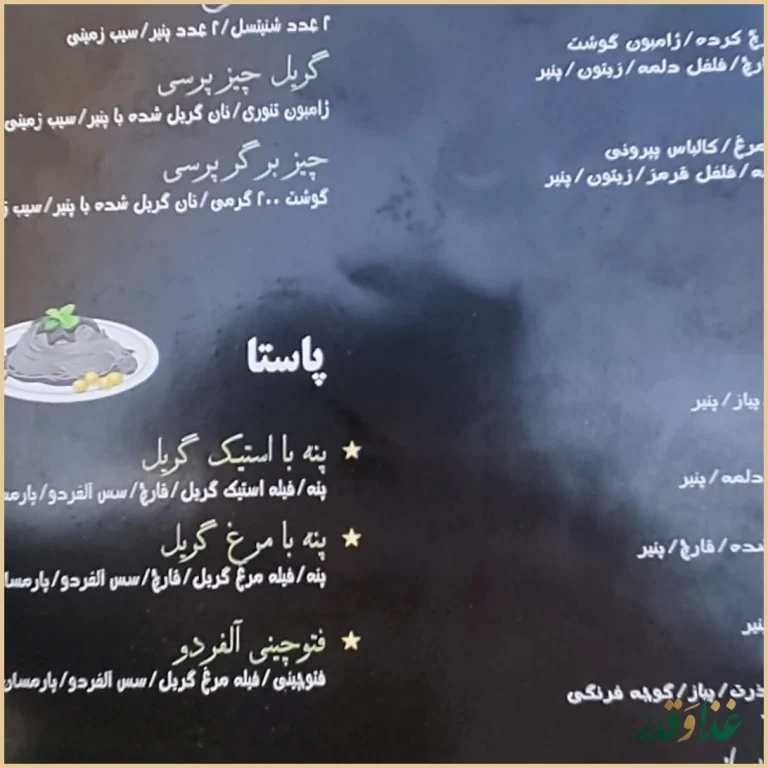 چ کرده/ژامبون گوشت
قارچ/فلفل دلمه/زیتون/پنیر
مرغ/کالباس پپرونی
فلفل قرمز/زیتون/پنیر
پیاز/پنیر
دلمه/پنیر
شده/قارچ/پنیر
پنیر
ذرت/پیاز/گوجه فرنگی
۲ عدد شنیتسل/۲ عدد پنیر/سیب زمینی
گریل چیز پرسی
ژامبون تنوری/نان گریل شده با پنیر/سیب زمینی
چیز برگر پرسی
گوشت ۲۰۰ گرمی/نان گریل شده با پنیر/سیب
پاستا
پنه با استیک گریل
پنه/فیله استیک گریل/قارچ/سس آلفردو/پارمسا
پنه با مرغ گریل
پنه/فیله مرغ گریل/قارچ/سس آلفردو/پارمسا
فتوچینی آلفردو
فتوچینی/فیله مرغ گریل/سس آلفردو/پارمسان
غذا و قدر